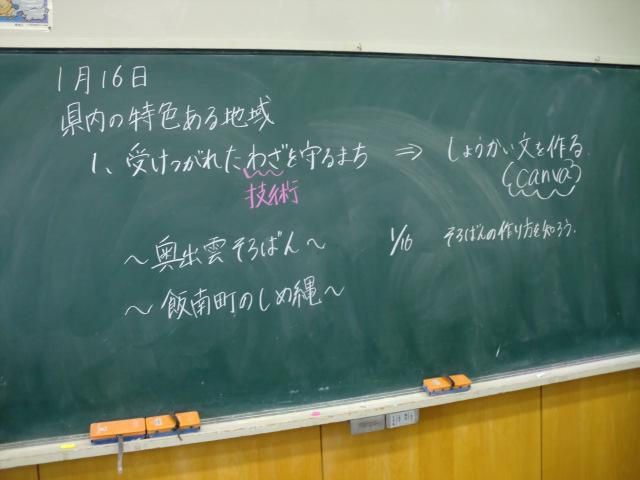 1月16日
県内の特色ある地域
1、受けつがれたわざを守るまち ⇒ しょうかい文を作る。
技術
(canva)
〜奥出雲そろばん〜
1/16 そろばんの作り方を知ろう。
〜飯南町のしめ縄〜